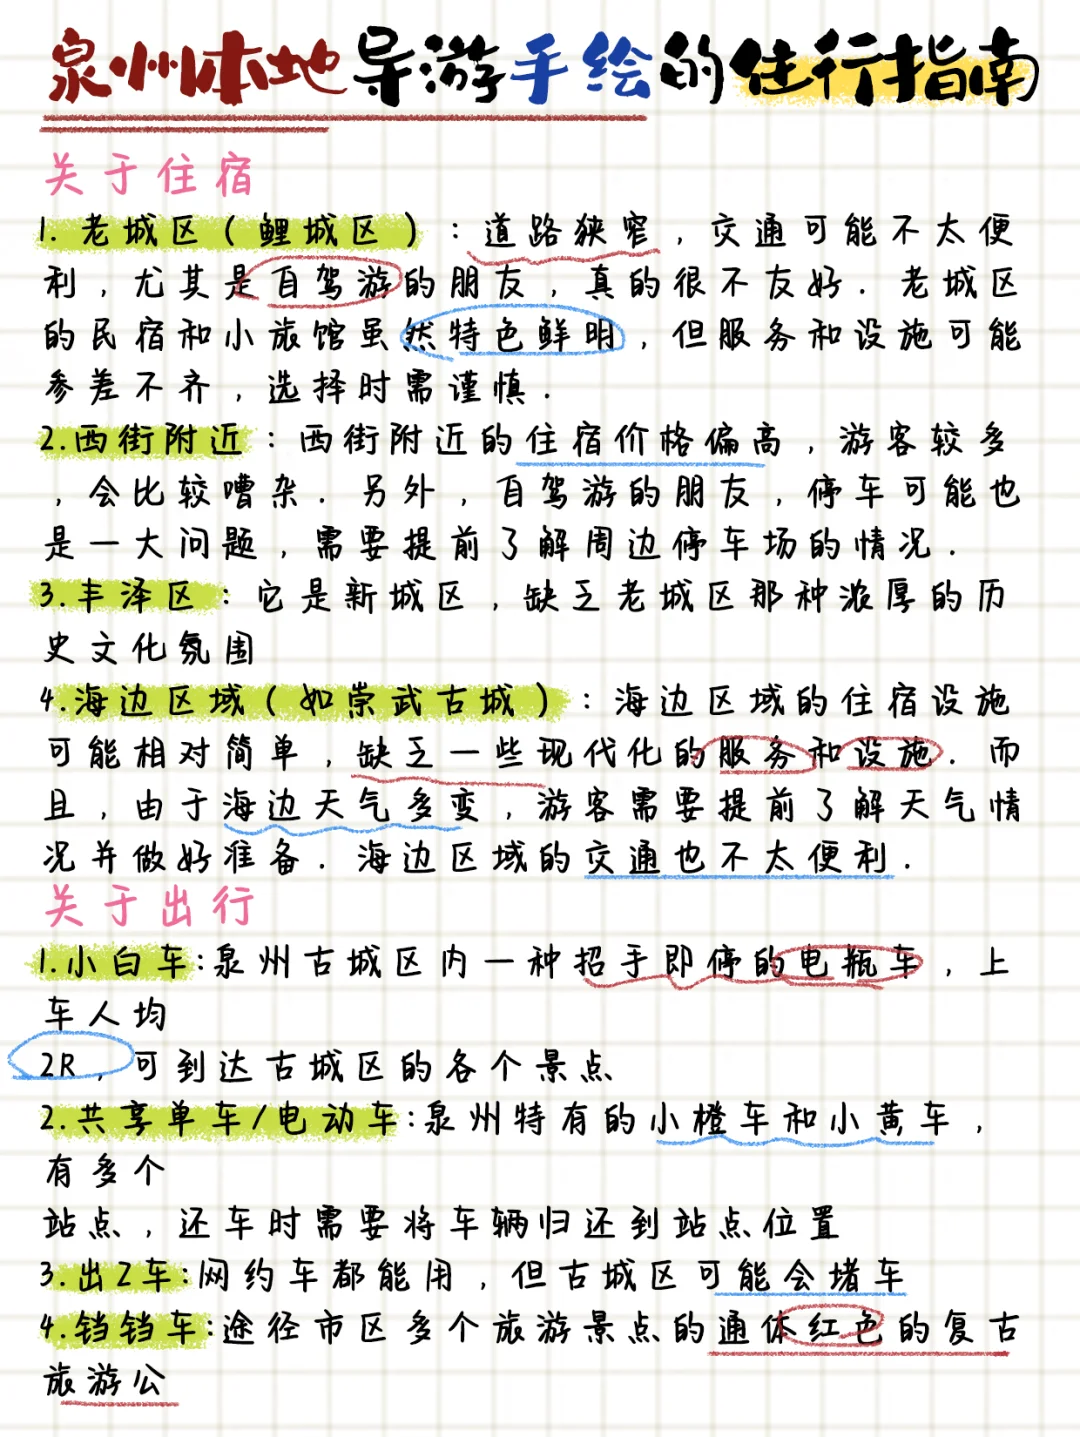 泉州本地导游手绘的住行指南
关于住宿
1. 老城区(鲤城区):道路狭窄,交通可能不太便
利,尤其是自驾游的朋友,真的很不友好.老城区
的民宿和小旅馆虽然特色鲜明,但服务和设施可能
参差不齐,选择时需谨慎.
2.西街附近:西街附近的住宿价格偏高,游客较多
,会比较嘈杂.另外,自驾游的朋友,停车可能也
是一大问题,需要提前了解周边停车场的情况.
3.丰泽区:它是新城区,缺乏老城区那种浓厚的历
史文化氛围
4.海边区域(如崇武古城):海边区域的住宿设施
可能相对简单,缺乏一些现代化的服务和设施.而
且,由于海边天气多变,游客需要提前了解天气情
况并做好准备.海边区域的交通也不太便利.
关于出行
1.小白车:泉州古城区内一种招手即停的电瓶车,上
车人均
2R,可到达古城区的各个景点
2.共享单车/电动车:泉州特有的小橙车和小黄车,
有多个
站点,还车时需要将车辆归还到站点位置
3.出Z车:网约车都能用,但古城区可能会堵车
4.铛铛车:途径市区多个旅游景点的通体红色的复古
旅游公